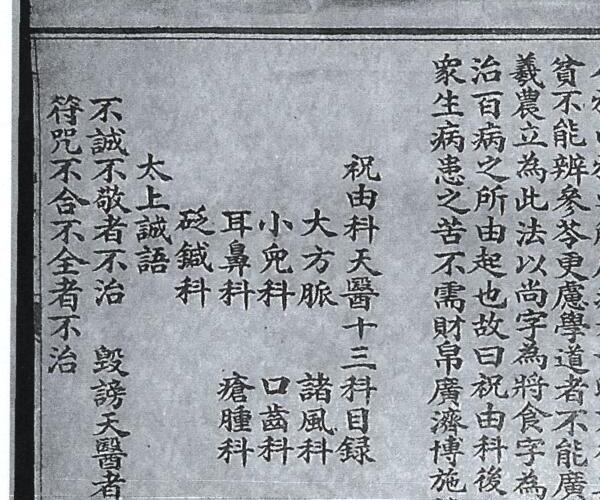 貧不能辨參苓更慮學道者不能廣
羲農立為此法以尚字為將食字為
治百病之所由起也故曰祝由科後
衆生病患之苦不需財帛廣濟博施
祝由科天醫十三科目録
大方脈 諸風科
小兒科 口齒科
耳鼻科 瘡腫科
砭鍼科
太上誡語
不誠不敬者不治 毀謗天醫者
符咒不合不全者不治